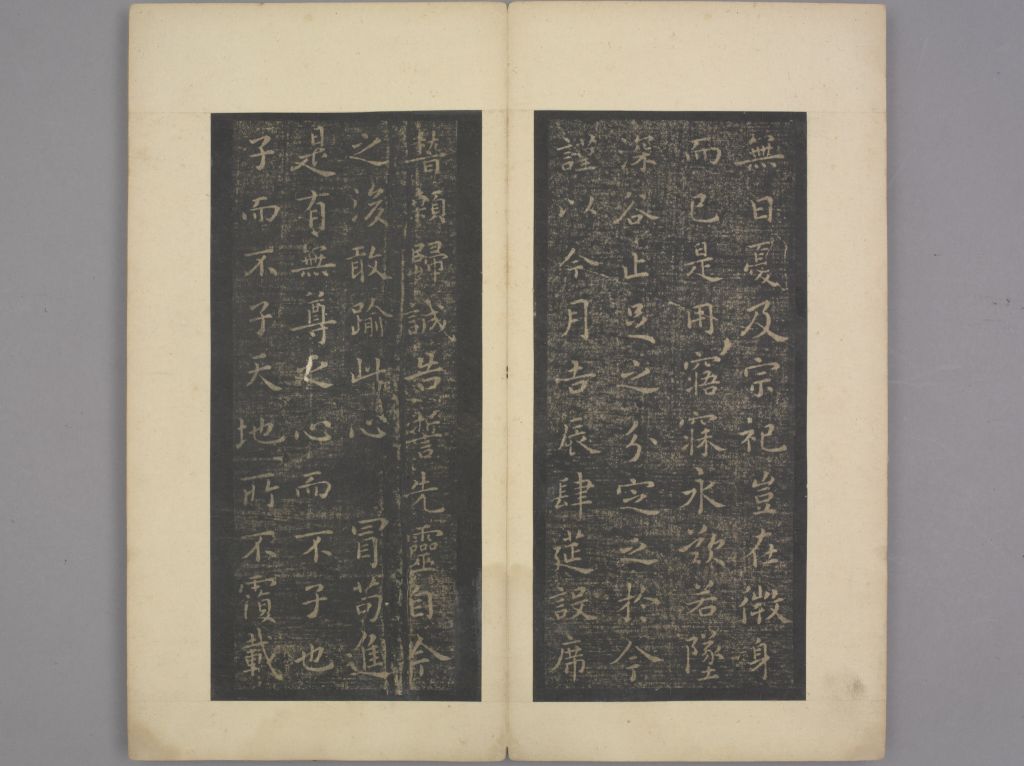 無日憂及宗祀豈在微身
而已是用寤寐永歎若墜
深谷止足之分定之於今
謹以今月吉辰肆筵設席
稽顙歸誠告誓先靈自今
之後敢踰此心冒苟進
是有無尊之心而不子也
子而不子天地所不覆載